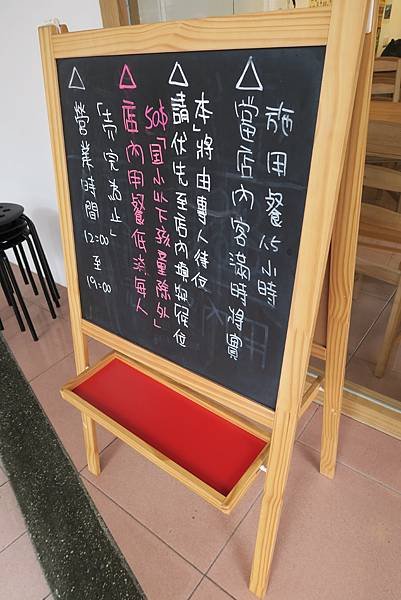 △營業時間 12:00 至 19:00
「売完為止」
△店內用餐低消每人
50$「国小以下孩童除外」
△請伏先至店內填寫候位
本」將由專人待位
△當店內客滿時將實
施用餐1.5小時